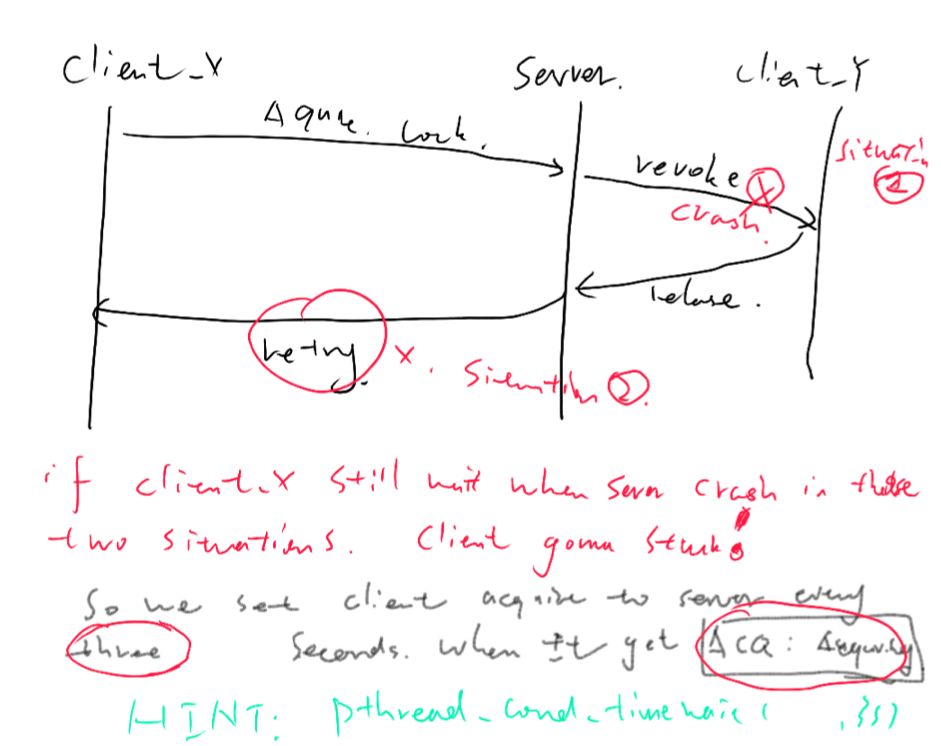 Client_X Server. Client_Y
Aquire. lock.
revoke
Situatin ①
crash.
release.
retry. x. Situation ②.
if client_X still wait when server crash in these
two situations. Client gonna stuck!
So we set client acquire to server every
three seconds. when it get ACQ: Acquiring
HINT: pthread_cond_timewait( , 3s)